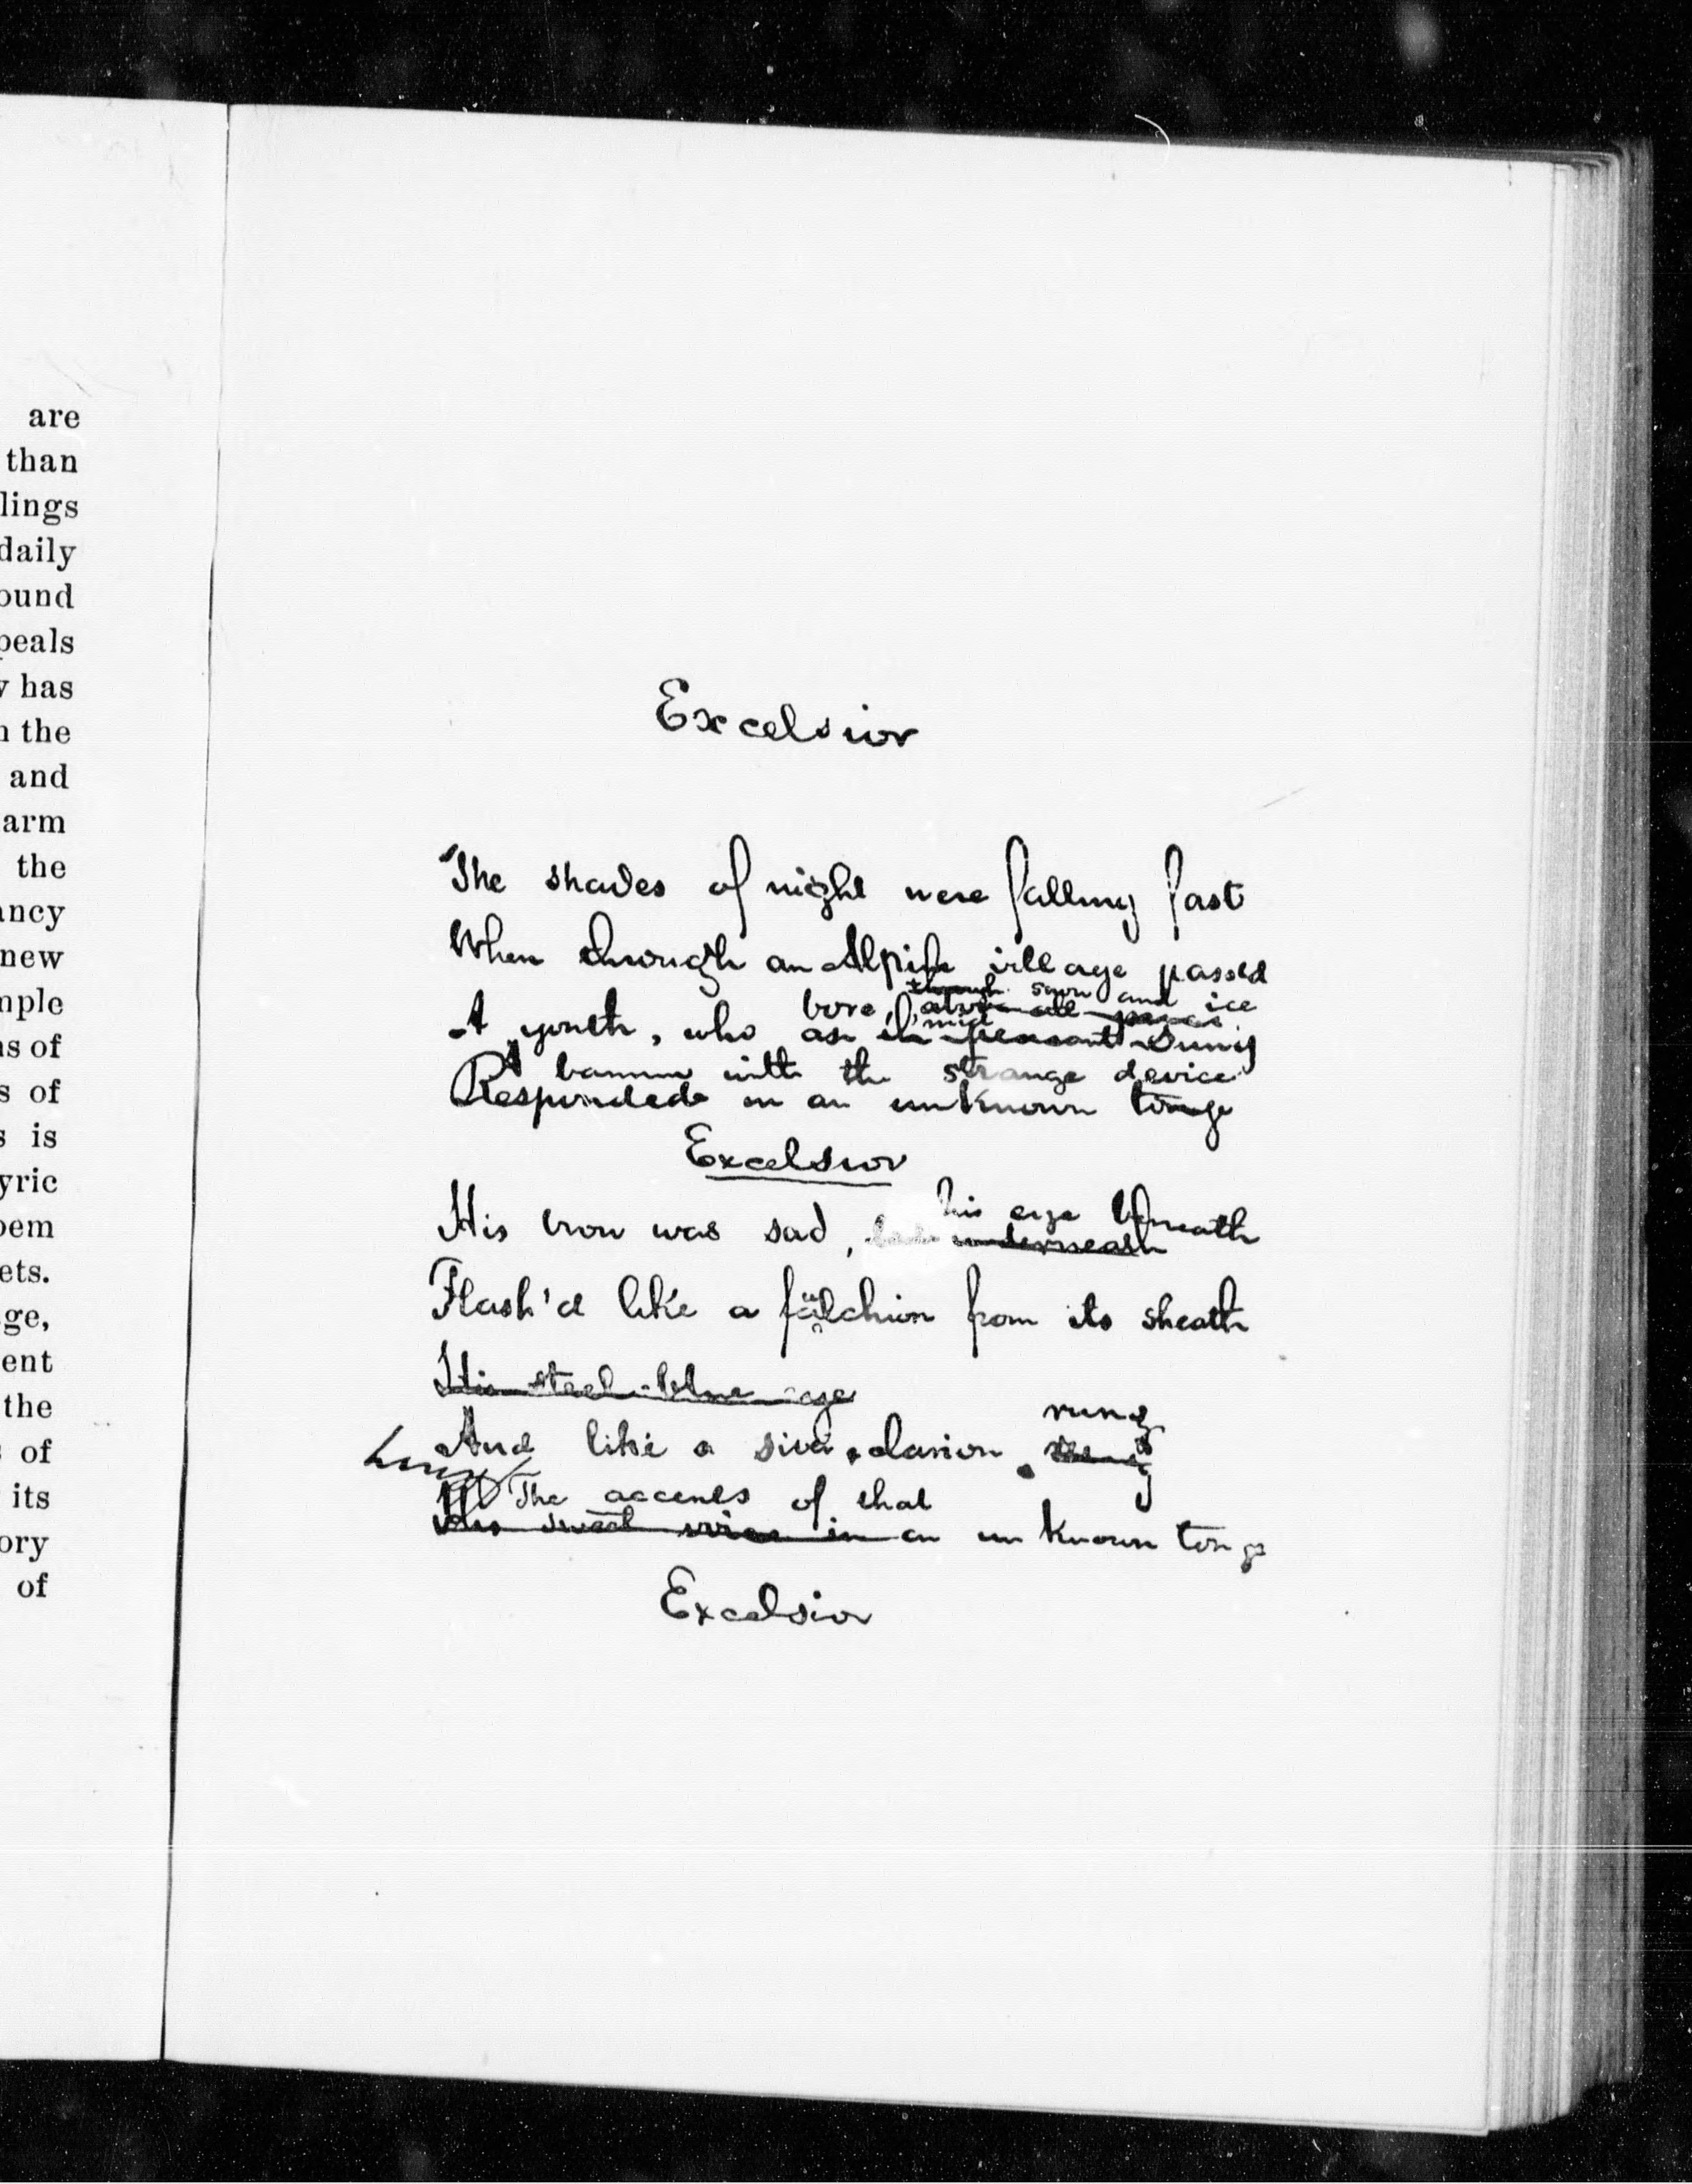 are
than
lings
daily
ound
peals
y has
n the
and
arm
the
ancy
new
mple
ns of
s of
s is
yric
oem
ets.
ge,
ent
the
s of
its
ory
of
Excelsior
The shades of night were falling fast
When through an Alpine village passed
through snow and ice
bore, above all
A youth, who as in 'mid pleasant
A banner with the strange device
Responded in an unknown tonge
Excelsior
his eye beneath
His brow was sad, underneath
Flash'd like a falchion from its sheath
His steel-blue eye
rung
And like a silver clarion
The accents of that
His sweet voice in an unknown tonge
Excelsior